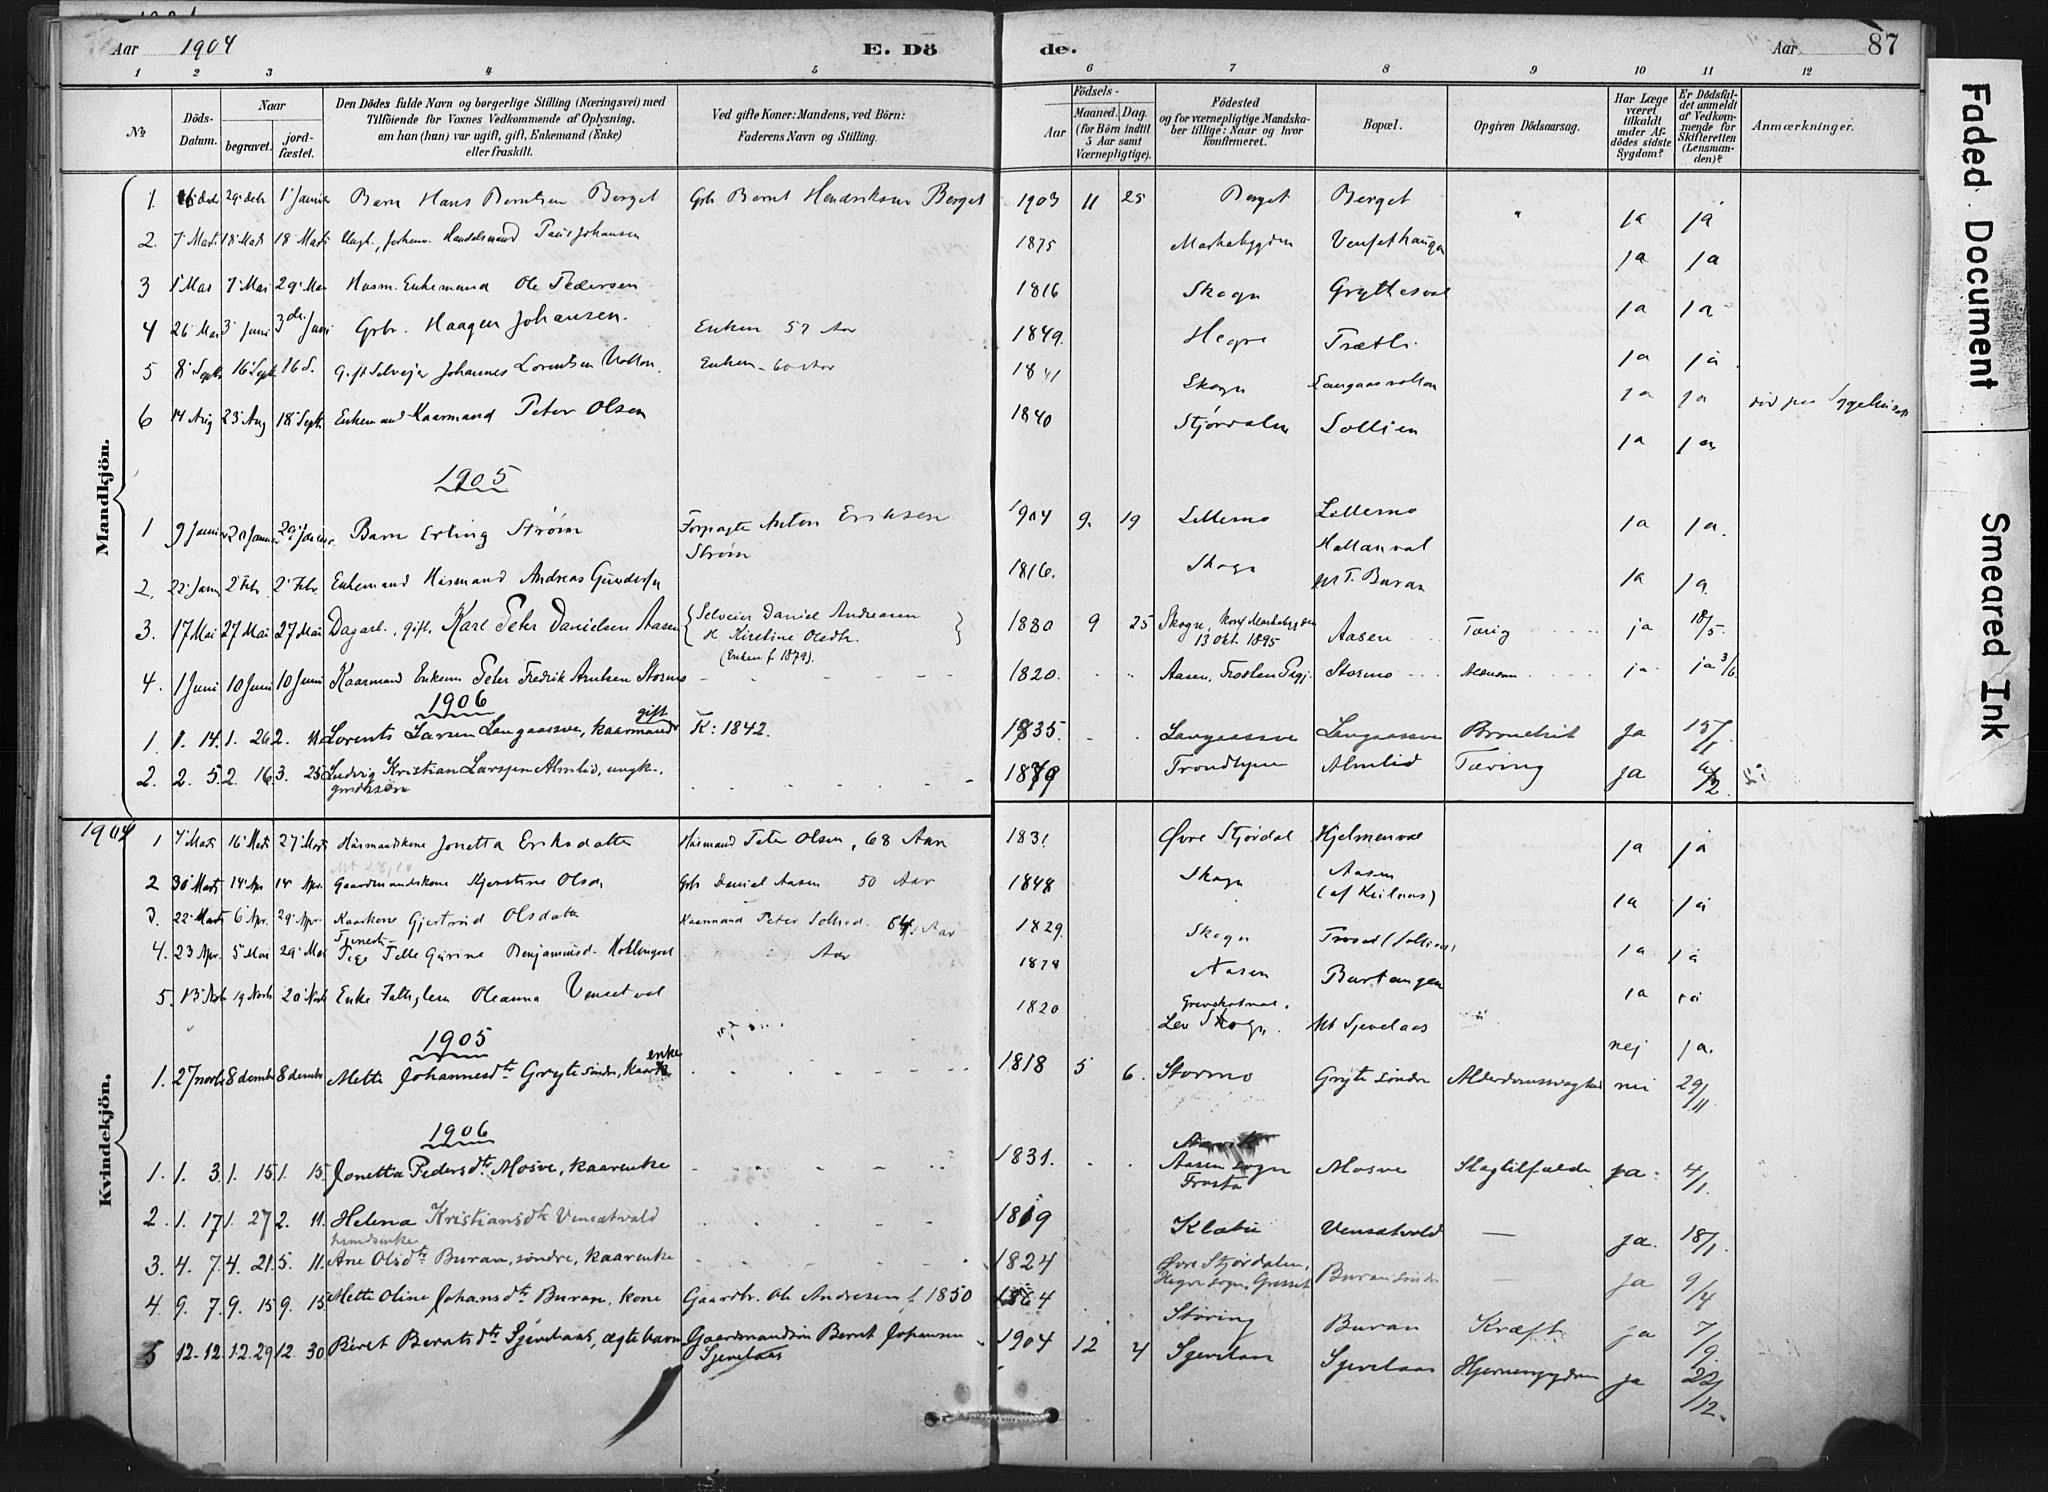 Aar 1904 E. Dö de. Aar 87
1 2 3 4 5 6 7 8 9 10 11 12
No
Döds-Datum.
Naar
begravet.
jord-fæstet.
Den Dödes fulde Navn og borgerlige Stilling (Næringsvei) med
Tilföiende för Voxnes Vedkommende af Oplysning,
om han (hun) var ugift, gift, Enkemand (Enke)
eller fraskilt.
Ved gifte Koner: Mandens, ved Börn:
Faderens Navn og Stilling.
Födsels-
Aar
Maaned. Dag.
(for Börn indtil
5 Aar samt
Værnepligtige).
Födested
og for værnepligtige Mandska-
ber tillige: Naar og hvor
konfirmeret.
Bopæl.
Opgiven Dödsaarsag.
Har Læge
været
tilkaldt
under Af-
dödes sidste
Sygdom?
Er Dödsfal-
det anmeldt
af Vedkom-
mende for
Skifteretten
(Lensman-
den)?
Anmærkninger.
Mandkjön.
1. 29 1 Januar Barn Hans Berntsen Berget Grb Bernt Hendriksen Berget 1903 11 25 Berget Berget ja ja
2. 7 Mars 18 Mars 18 Mars Handelsmand Paul Johansen 1875 Markabygden ja ja
3 1 Mai 7 Mai 29 Mai Husm. Enkemand Ole Pedersen 1816 Skogn ja ja
4 26 Mai 3 Juni 3die Juni Grbr. Haagen Johansen. Enken 57 Aar 1849. Hegre Trætli ja ja
5 8 Septb 16 Septb 16 S. Gift Selveier Johannes Lorentsen Enken 60 Aar 1841 Skogn ja ja
6 14 Aug 23 Aug 18 Septb Enkemand Kaarmand Peter Olsen 1840 Stjørdalen Sollien ja ja død paa Sygehuset
1905
1 9 Januar 20 Januar 29 Januar Barn Erling Strøm Forpagter Anton Eriksen 1904 9. 19 Lillemo Lillemo ja ja.
Strøm
2. 22 Jan 2 Febr. 2 Febr. Enkemand Husmand Andreas 1816. Skogn Buran ja ja.
3. 17 Mai 27 Mai 27 Mai Dagarb., gift, Karl Peter Danielsen Aasen {Selveier Daniel Andreasen 1880 9 25 Skogn, Konf. Markabygden Aasen Tæring ja 18/5.
Kirstine Olsdtr. 13 Okt. 1895
(Enken f. 1879).
4. 1 Juni 10 Juni 10 Juni Kaarmand Enkem Peter Fredrik Arntsen Stormo 1820. Aasen, Frosten Stormo ja ja 3/6.
1906
1. 1. 14. 1. 26. 2. 11. Lorents Larsen Langaassve, kaarmand gift K: 1842. 1835. Langaassve Langaassve Bronchit ja 15/1
2. 2. 5. 2. 16. 3. 25. Ludvig Kristian Larssen Almlid, ungk., 1879 Trondhjem Almlid Tæring ja 6/2
Kvindekjön.
1904
1 7 Mars 16 Mars 27 Mars Husmandskone Jonetta Eriksdatter Husmand Peter Olsen, 68 Aar 1831 Øvre Stjørdal Hjelmenval ja ja
2 30 Mars 14 Apr 14 Apr. Gaardmandskone Kjerstine Olsdr Grb Daniel Aasen 50 Aar 1848 Skogn Aasen ja ja
3. 22 Mars 6 Apr. 29 Apr. Kaarkone Gjertrud Olsdatter Kaarmand Peter 64 Aar 1829. Skogn ja ja
4. 23 Apr. 5 Mai 29 Mai Tjenesti- Pige Gurine Benjaminsd. Aar 1878 Aasen Burtangen ja ja
5. 13 Novb 19 Novb 20 Novb Enke Oleanna 1820 Skogn. Sjevelaas nej ja.
1905
1. 27 novb 8 decmb 8 decmb Mette Johannesdtr Gryte søndre, kaarenke 1818 5 6. Stormo Gryte søndre Alderdomssvaghed nei 29/11
1906
1. 1. 3. 1. 15. 1. 15. Jonetta Pedersdtr Mosve, kaarenke 1831. Aasen sogn Mosve Slagtilfælde ja. 4/1.
Frosta
2. 1. 17. 1. 27. 2. 11. Helena Kristiansdtr Vensætvald 1819 Klæbu Vensætvald — ja. 18/1.
3. 4. 7. 4. 21. 5. 11. Ane Olsdtr Buran, søndre, kaarenke 1824 Øvre Stjørdalen, Buran søndre — ja 9/4
Hegre sogn,
4. 9. 7. 9. 15. 9. 15 Mette Oline Johansdtr Buran, kone Gaardbr. Ole Andresen f. 1850 1864 Støring Buran Kræft ja 7/9.
5 12. 12 12. 29 12. 30 Beret Berntsdtr Sjevelaas, ægte barn Gaardmandssøn Bernt Johansen 1904 12 4 Sjevelaas Sjevelaas Hjernesygdom ja 22/12.
Sjevelaas
Faded Document
Smeared Ink